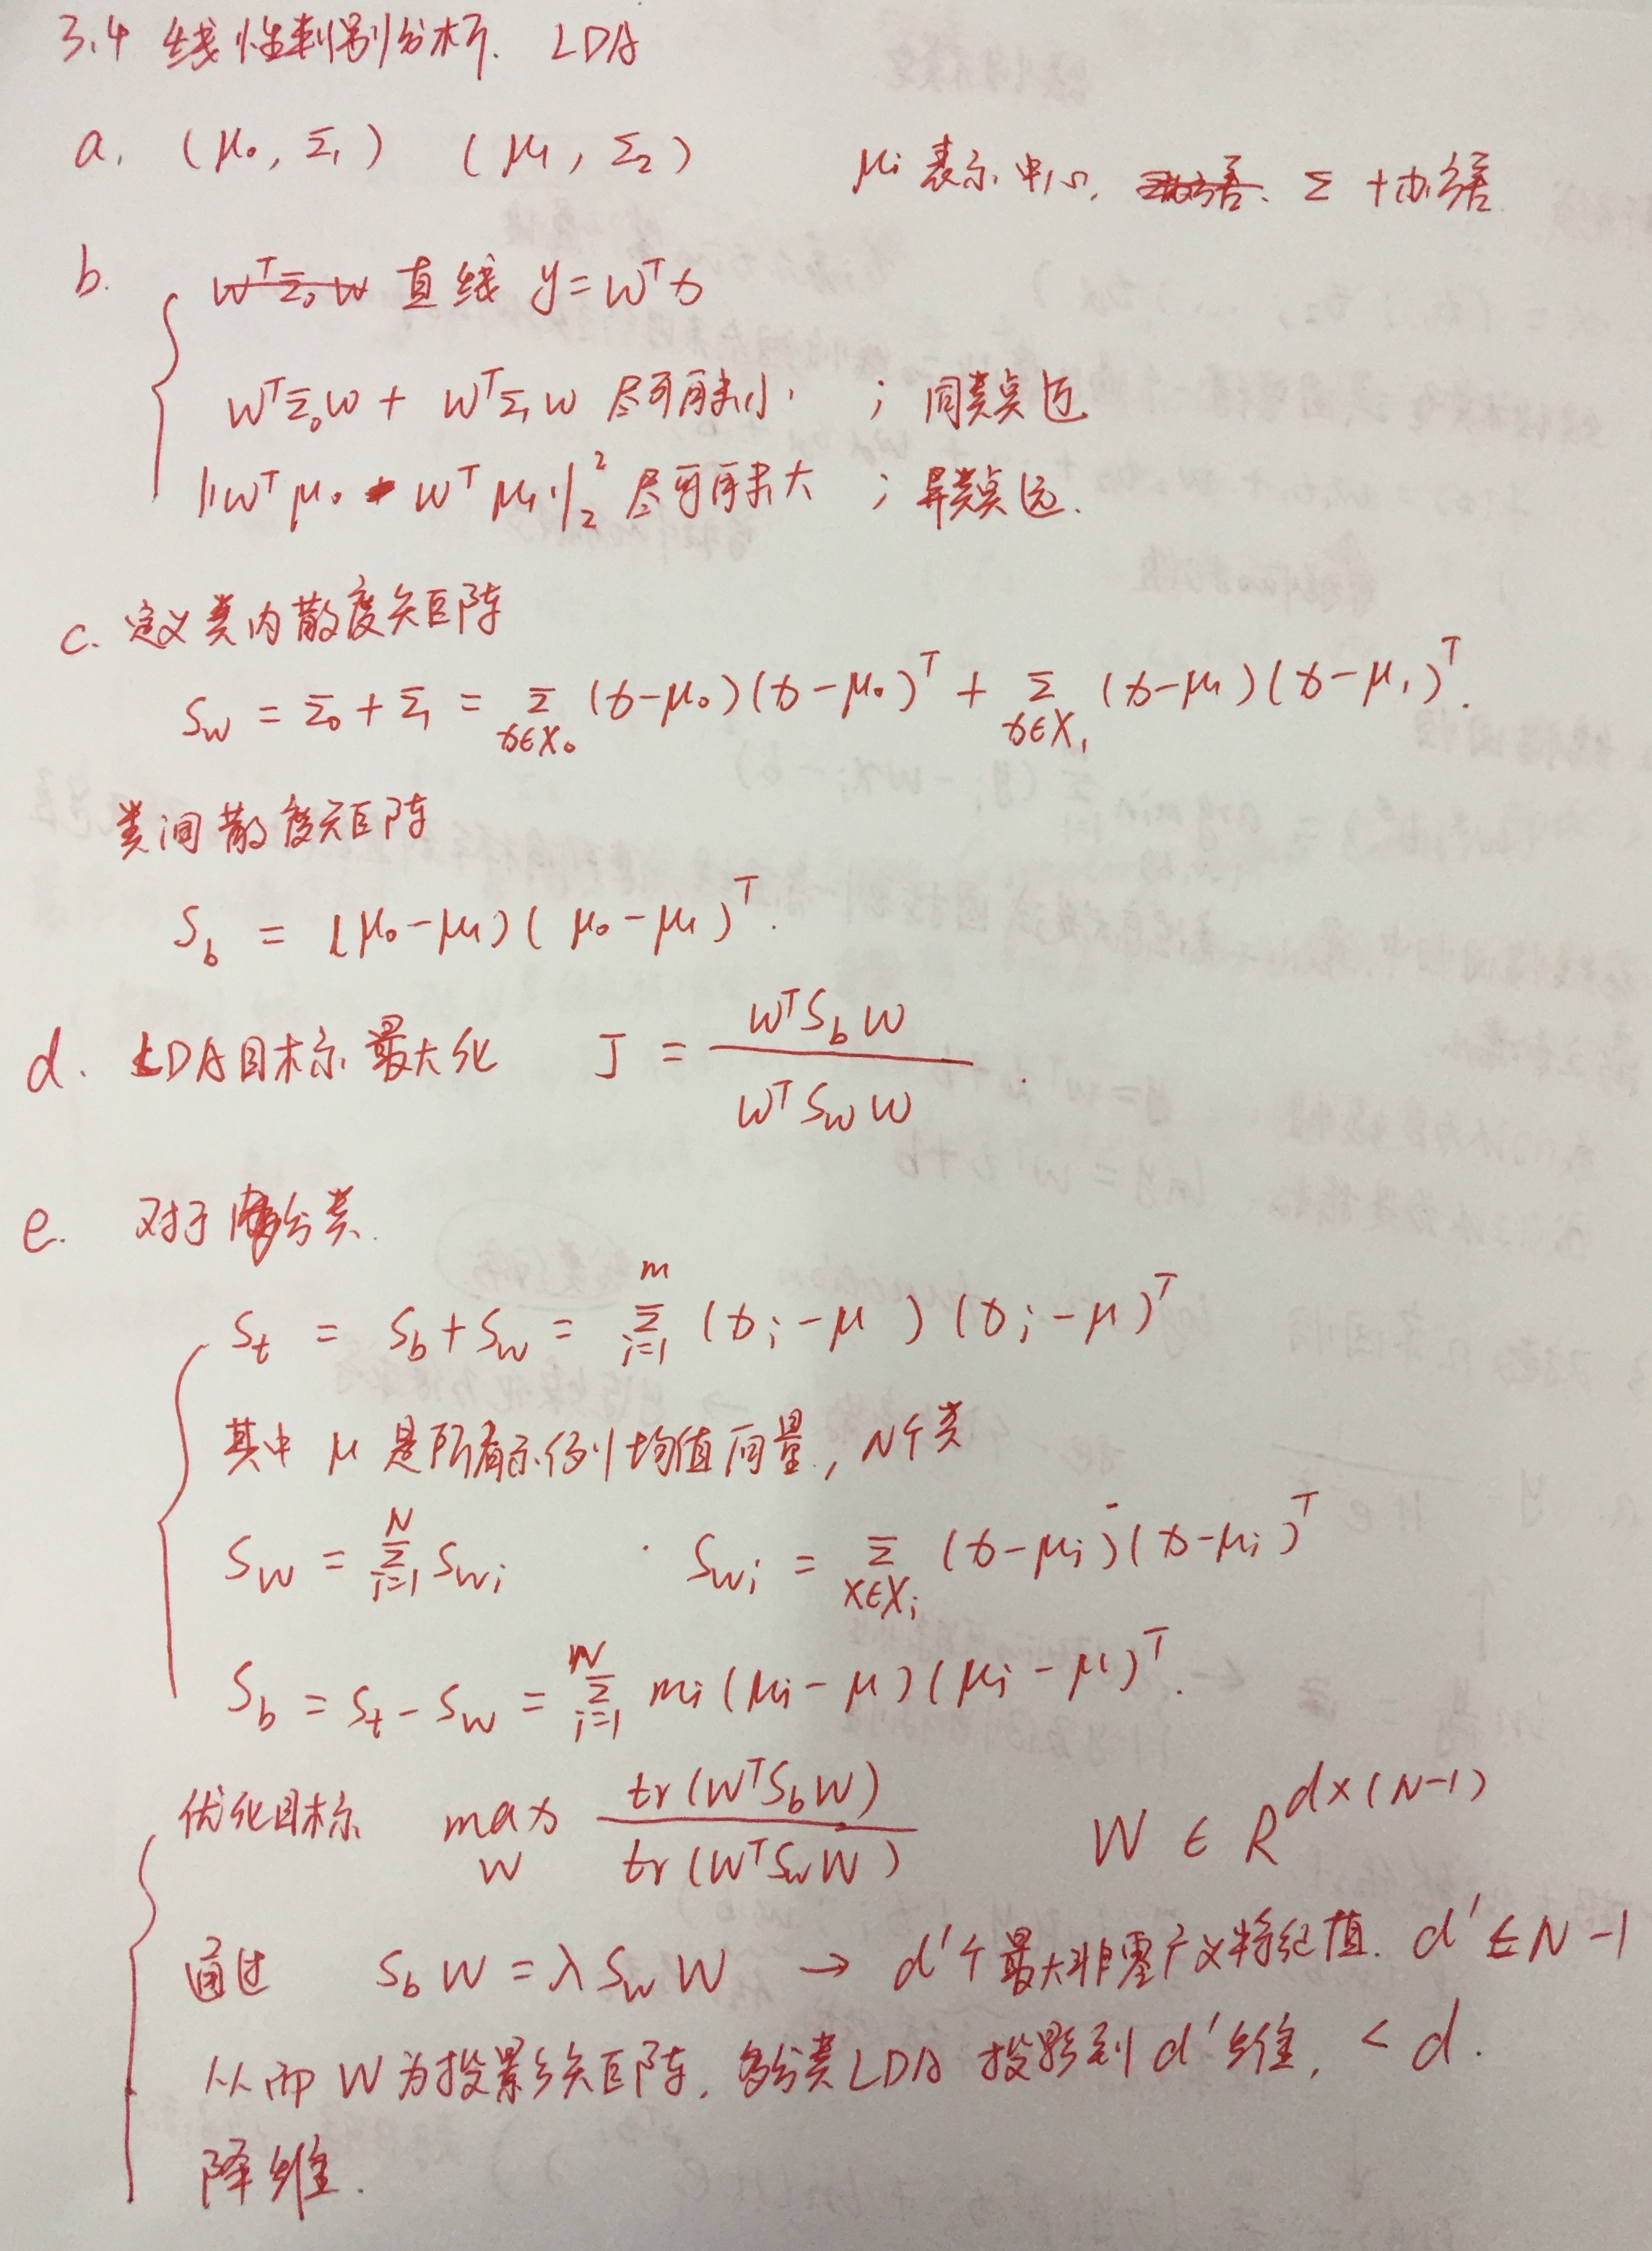 3.4 线性判别分析. LDA
a. (μ₀, Σ₁) (μ₁, Σ₂) μi 表示中心, Σ 协方差
b. 直线 y = wᵀx
wᵀΣ₀w + wᵀΣ₁w 尽可能小 ; 同类点近
||wᵀμ₀ - wᵀμ₁||₂² 尽可能大 ; 异类点远.
c. 定义类内散度矩阵
S_w = Σ₀ + Σ₁ = Σ_{x∈X₀} (x-μ₀)(x-μ₀)ᵀ + Σ_{x∈X₁} (x-μ₁)(x-μ₁)ᵀ.
类间散度矩阵
S_b = (μ₀-μ₁)(μ₀-μ₁)ᵀ.
d. LDA目标 最大化 J = wᵀS_b w / wᵀS_w w.
e. 对于多分类.
S_t = S_b + S_w = Σ_{i=1}^{m} (x_i-μ)(x_i-μ)ᵀ
其中 μ 是所有示例均值向量, N个类
S_w = Σ_{i=1}^{N} S_{wi} · S_{wi} = Σ_{x∈X_i} (x-μ_i)(x-μ_i)ᵀ
S_b = S_t - S_w = Σ_{i=1}^{N} m_i(μ_i-μ)(μ_i-μ)ᵀ.
优化目标 max_W tr(WᵀS_bW) / tr(WᵀS_wW) W ∈ R^{d×(N-1)}
通过 S_b W = λ S_w W → d'个最大非零广义特征值. d' ≤ N-1
从而 W 为投影矩阵, 多分类LDA 投影到 d'维, < d.
降维.